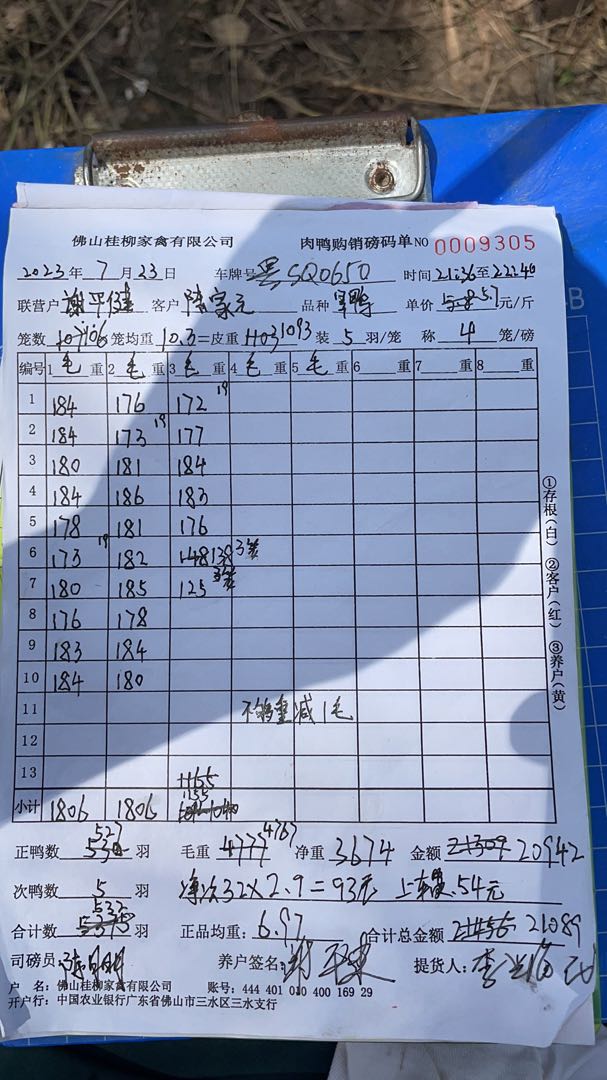 佛山桂柳家禽有限公司 肉鸭购销磅码单 NO 0009305
2023年 7月 23日 车牌号 SQ0650 时间 21:36至22:40
联营户 谢平健 客户 陈家元 品种 单价 5.7元/斤
笼数 106 笼均重 10.3=皮重 1093 装 5 羽/笼 称 4 笼/磅
编号 1 毛 重 2 毛 重 3 毛 重 4 毛 重 5 毛 重 6 重 7 重 8 重
1 184 176 172 19
2 184 173 19 177
3 180 181 184
4 184 186 183
5 178 181 176
6 173 19 182 138 3笼
7 180 185 125 3笼
8 176 178
9 183 184
10 184 180
11 不够重减1毛
12
13 1155
小计 1806 1806 1155
正鸭数 527 羽 毛重 4767 净重 3674 金额 20942
次鸭数 5 羽 净次32×2.9=93元 上车 54元
合计数 532 羽 正品均重: 6.97 合计总金额 21089
司磅员: 养户签名: 提货人:
户 名: 佛山桂柳家禽有限公司 账号: 444 401 010 400 169 29
开户行: 中国农业银行广东省佛山市三水区三水支行
①存根(白) ②客户(红) ③养户(黄)